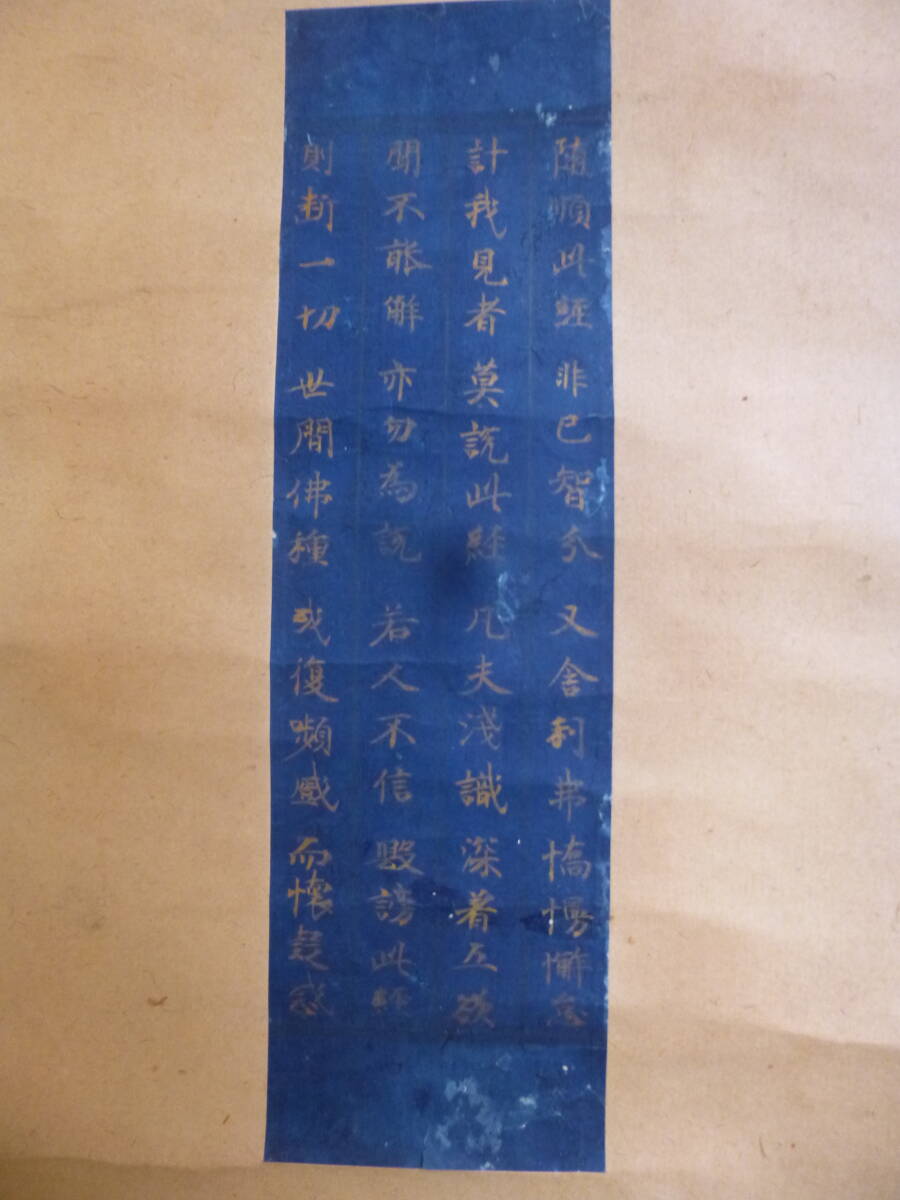 隨順此經 非己智分 又舍利弗 憍慢懈怠
計我見者 莫說此經 凡夫淺識 深著五欲
聞不能解 亦勿為說 若人不信 毀謗此經
則斷一切 世間佛種 或復顰蹙 而懷疑惑